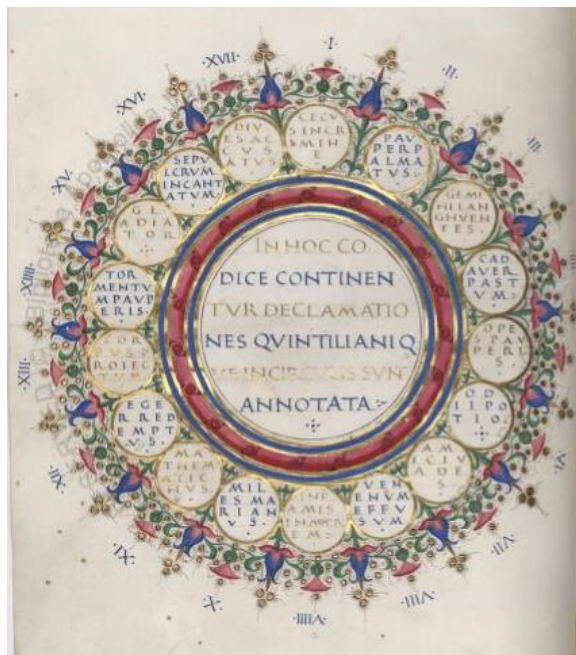 IN HOC CO
DICE CONTINEN
TVR DECLAMATIO
NES QVINTILIANI Q
VE IN CIRCVLIS SVNT
ANNOTATA
·I·
CECV
S INCR
IMIN
E
·II·
PAV
PERP
ALMA
TVS·
·III·
GEMI
NI LAN
GHVEN
TES
CAD
AVER
PAST
VM:
OPE
S PAV
PERI
S
·VI·
OD
II PO
TIO
·VII·
AM
·VIII·
VEN
ENVM
EFFV
SVM
·VIIII·
INF
AMIS
EM:
·X·
MIL
ES MA
RIAN
VS
·XI·
MA
THEM
ATIC
VS
·XII·
EGE
R RED
EMPT
VS
·XIII·
COR
PVS P
ROIEC
TVM
·XIIII·
TOR
MENTV
M PAVP
ERIS·
·XV·
GL
ADIA
TOR
·XVI·
SEPV
LCRVM
INCANT
ATVM
·XVII·
DIV
ES AC
VS
ATVS